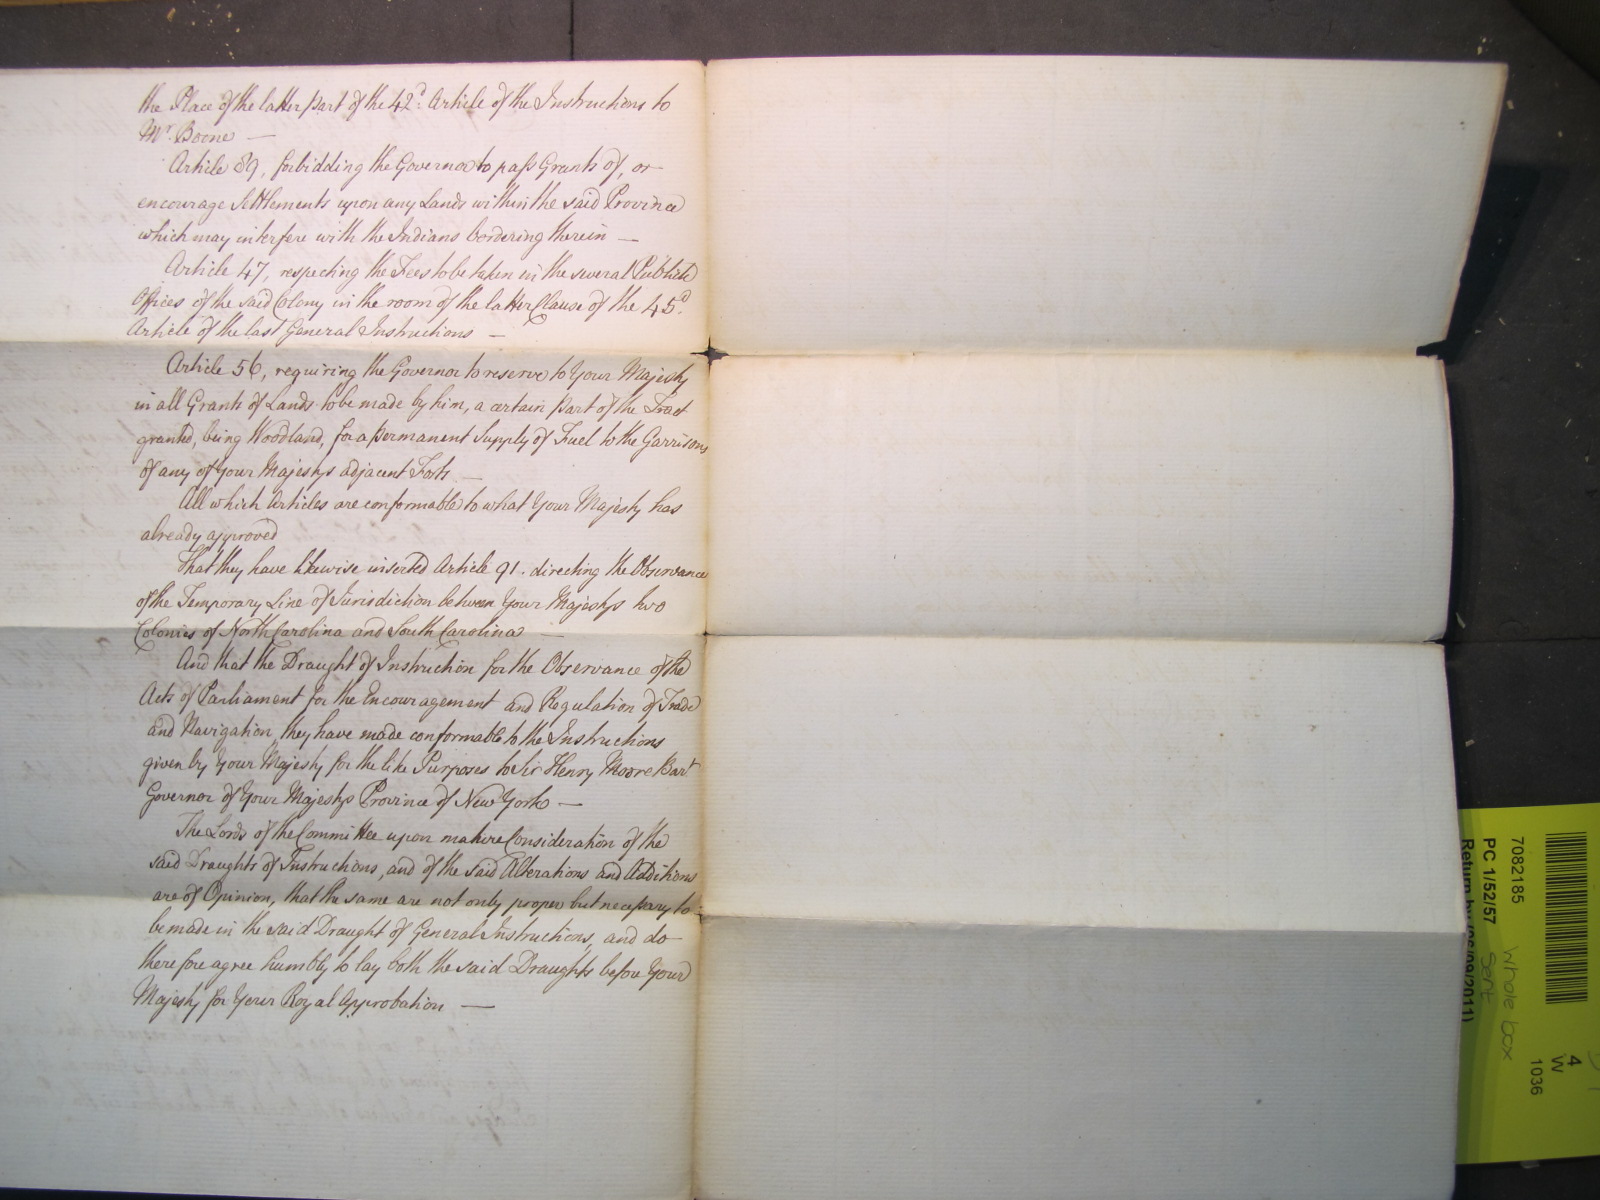 the Place of the latter part of the 42d. Article of the Instructions to
Mr. Boone —
Article 89, forbidding the Governor to pass Grants of, or
encourage Settlements upon any Lands within the said Province
which may interfere with the Indians bordering therein —
Article 47, respecting the Fees to be taken in the several Publick
Offices of the said Colony in the room of the latter Clause of the 45d.
Article of the last General Instructions —
Article 56, requiring the Governor to reserve to Your Majesty
in all Grants of Lands to be made by him, a certain part of the Tract
granted, being Woodland, for a permanent Supply of Fuel to the Garrisons
of any of Your Majestys adjacent Forts —
All which Articles are conformable to what Your Majesty has
already approved
That they have likewise inserted Article 91. directing the Observance
of the Temporary Line of Jurisdiction between Your Majestys two
Colonies of North Carolina and South Carolina —
And that the Draught of Instruction for the Observance of the
Acts of Parliament for the Encouragement and Regulation of Trade
and Navigation, they have made conformable to the Instructions
given by Your Majesty for the like Purposes to Sir Henry Moore Bart
Governor of Your Majestys Province of New York —
The Lords of the Committee upon mature Consideration of the
said Draughts of Instructions, and of the said Alterations and Additions
are of Opinion, that the same are not only proper but necessary to
be made in the said Draught of General Instructions, and do
therefore agree humbly to lay both the said Draughts before Your
Majesty for Your Royal Approbation —
7082185
PC 1/52/57
Return by (06/09/2011)
whole box
sent
4
W
1036